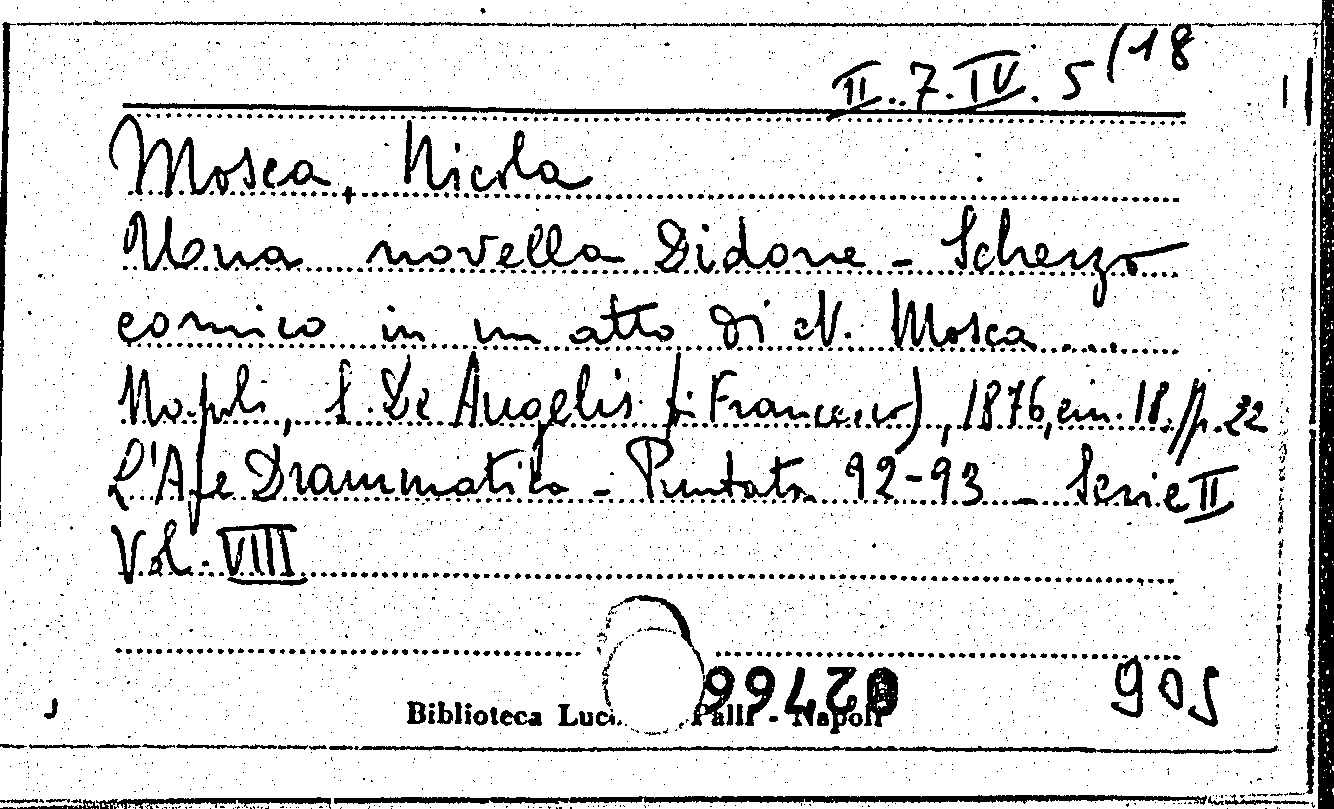 II.7.IV.5(18
Mosca, Nicola
Una novella Didone - Scherzo
comico in un atto di N. Mosca ....
Napoli, S. De Angelis (: Francesco), 1876, in. 18. p. 22
L'Ape Drammatica - Puntata 92-93 - Serie II
Vol. VIII
905
Biblioteca Napoli